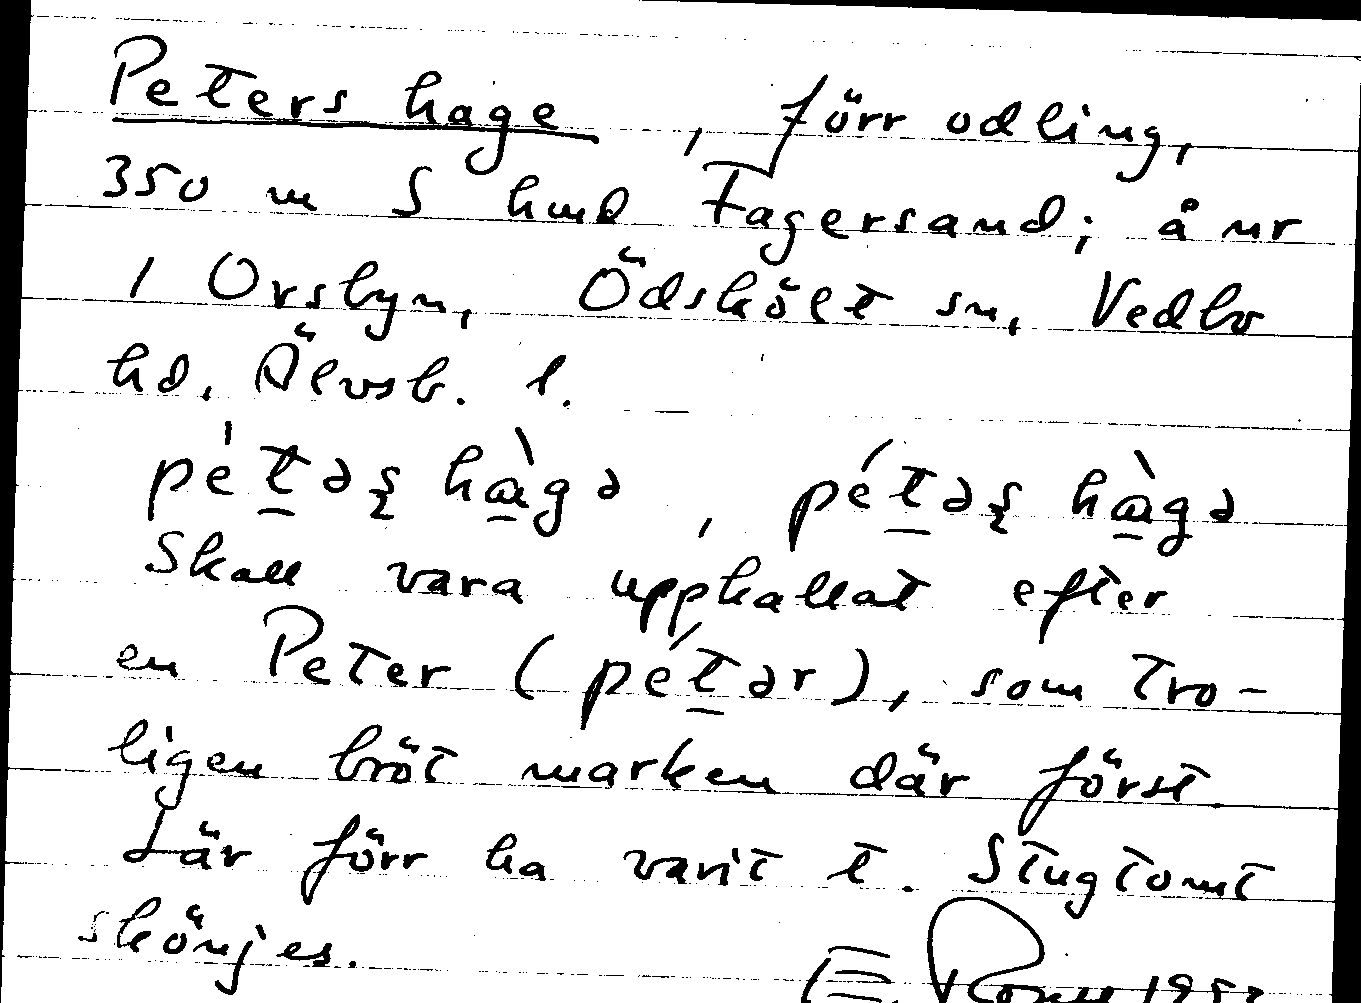 Peters hage, förr odling,
350 m S hmd Fagersand; å nr
1 Orsbyn, Ödskölt sn, Vedbo
hd, Älvsb. l.
pétəʂ hàgə, pétəʂ hàgə
Skall vara uppkallat efter
en Peter (pétər), som tro-
ligen bröt marken där först.
Lär förr ha varit t. Stugtomt
skönjes.